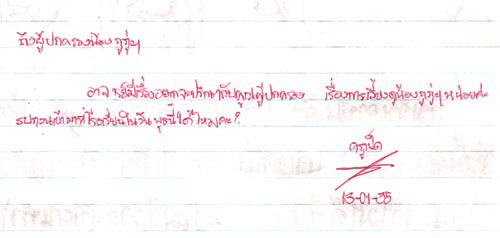 ถึงผู้ปกครองน้อง กุ๊กๆ
อาจารย์มีเรื่องอยากจะปรึกษากับคุณผู้ปกครอง เรื่องการเลี้ยงดูน้อง หน่อยค่ะ
รบกวนเข้ามาที่โรงเรียนในวัน พุธนี้ได้ไหมคะ?
ครูเป็ด
13-01-35